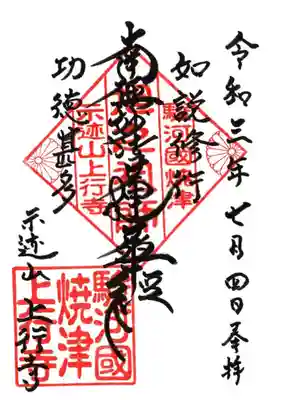 令和三年七月四日奉拝
如説修行
駿河國焼津
南無妙法蓮華経
示迹山上行寺
功徳甚多
示迹山上行寺
駿河國
焼津
上行寺